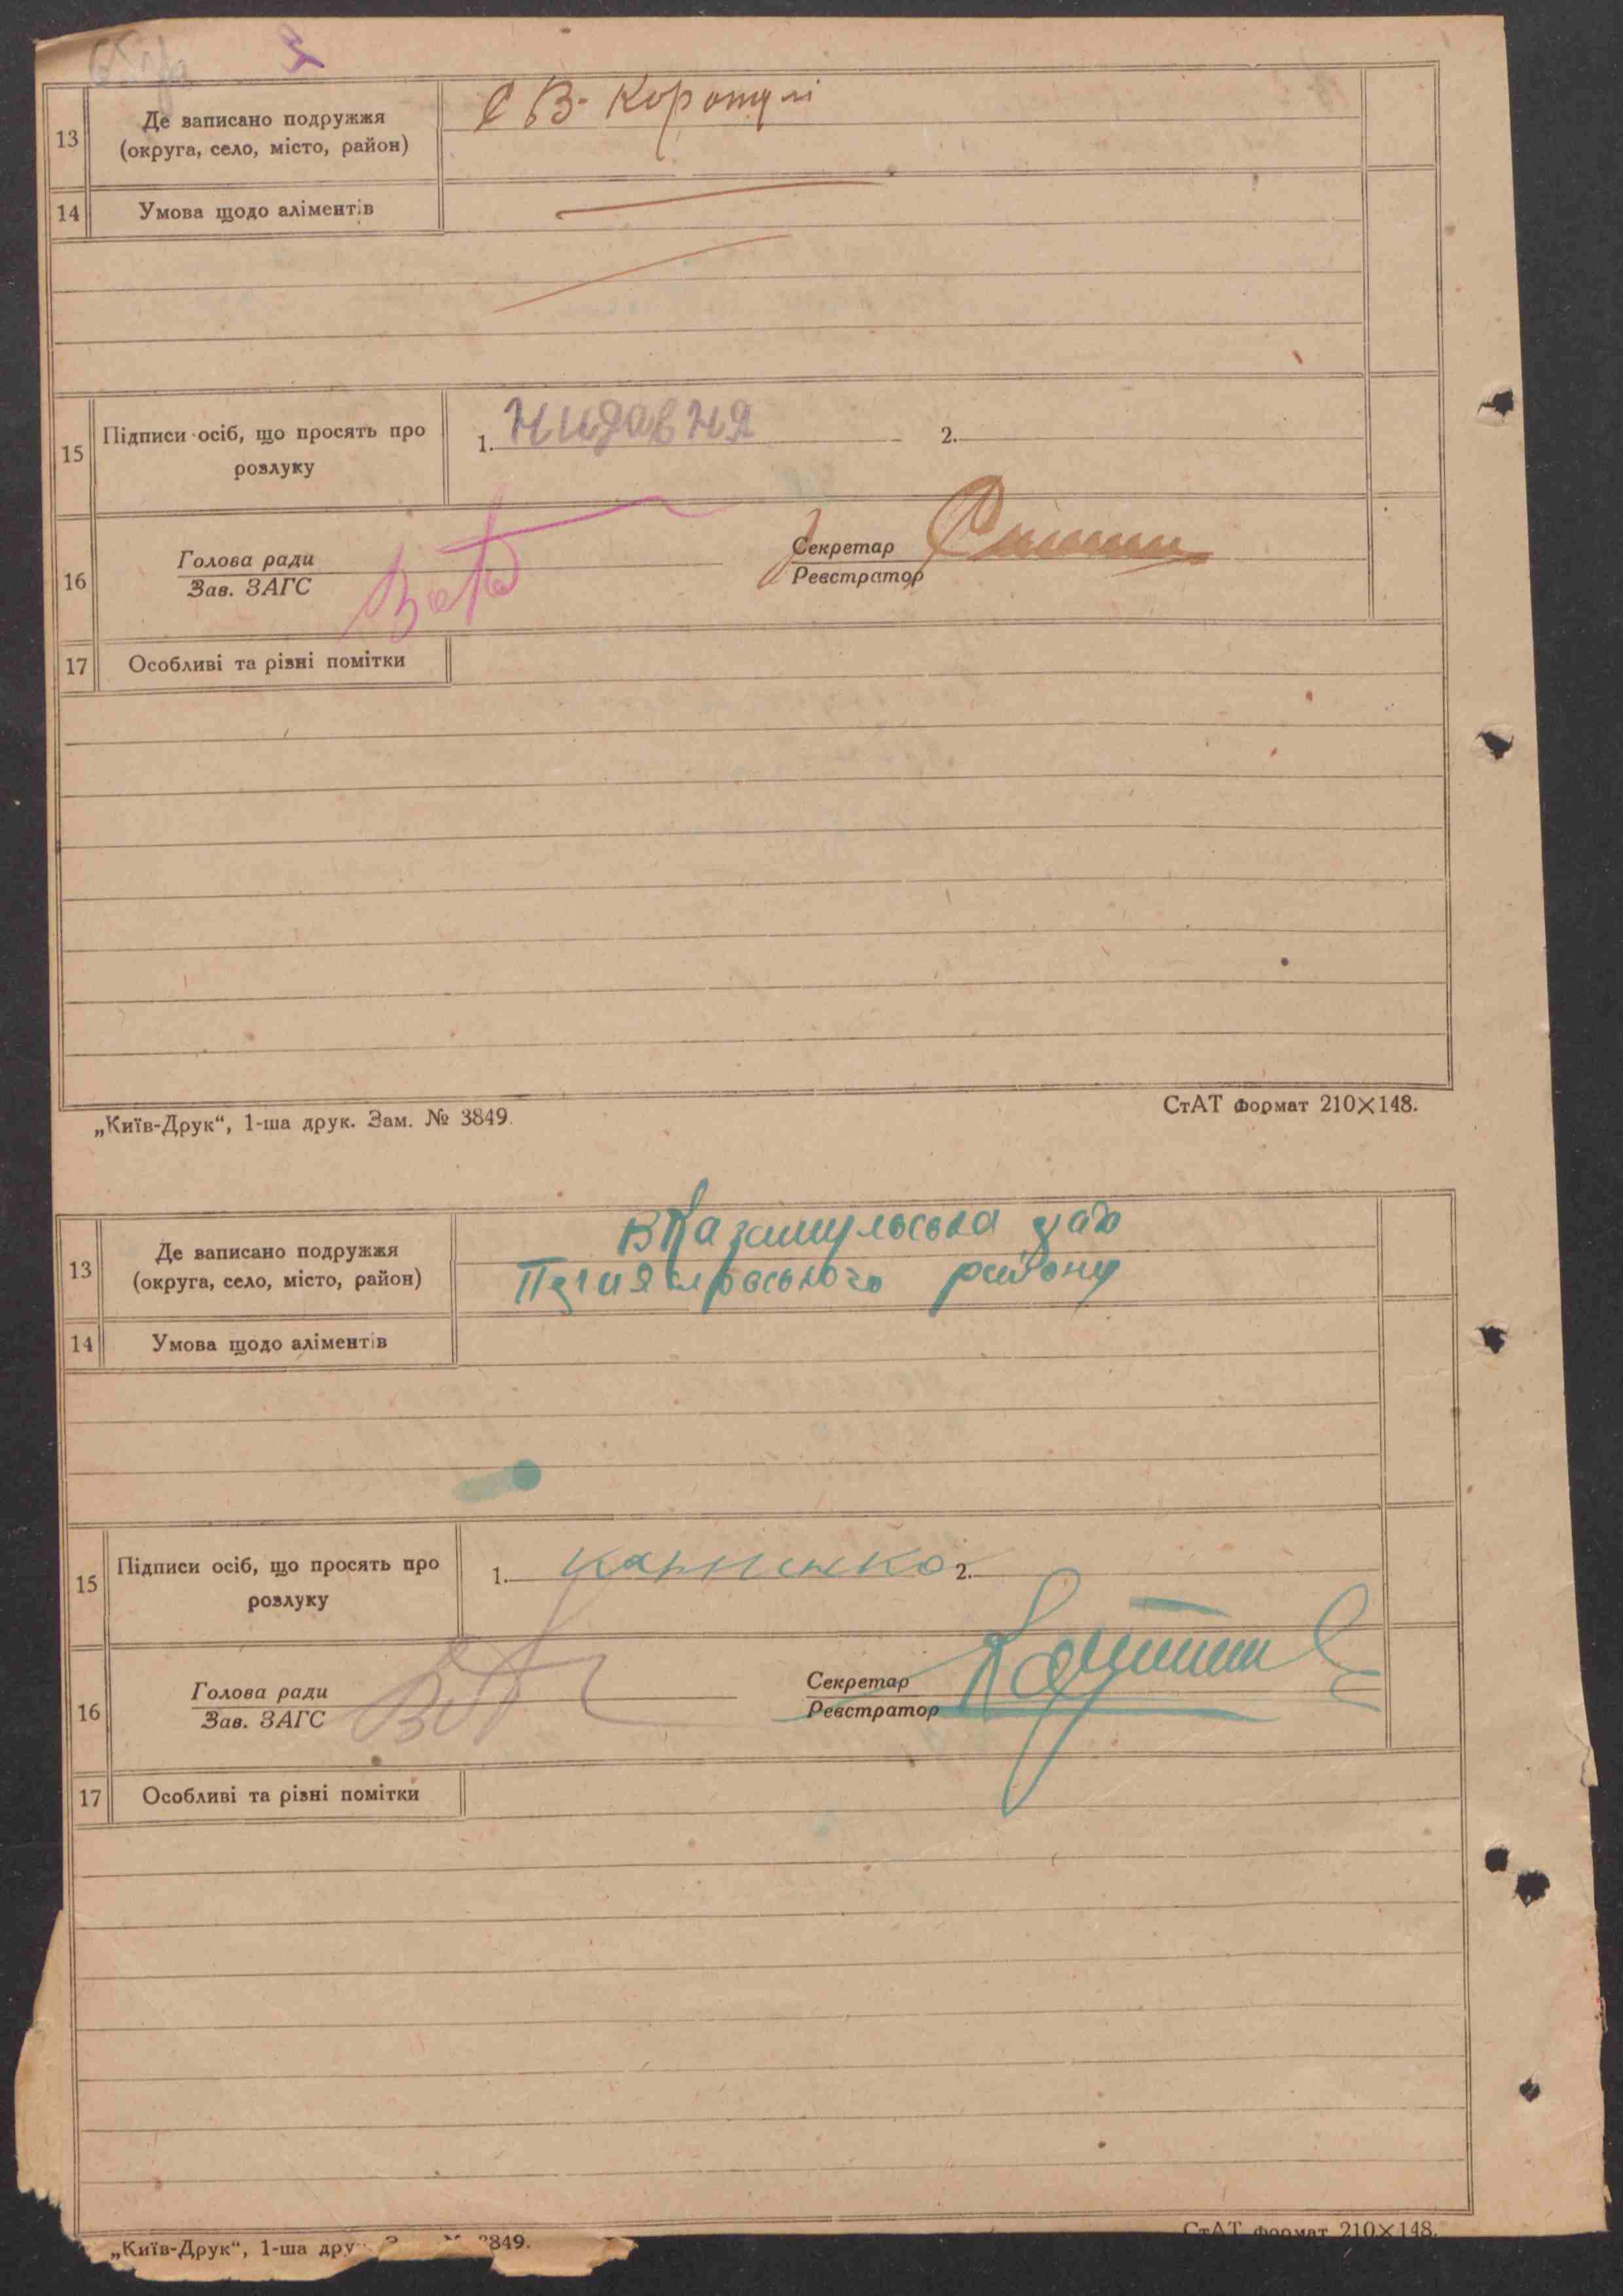 13
Де записано подружжя
(округа, село, місто, район)
В- Коротулі
14
Умова щодо аліментів
15
Підписи осіб, що просять про
розлуку
1. Нидавня
2.
16
Голова ради
Зав. ЗАГС
Секретар
Реєстратор
17
Особливі та різні помітки
„Київ-Друк“, 1-ша друк. Зам. № 3849.
СтАТ формат 210×148.
13
Де записано подружжя
(округа, село, місто, район)
району
14
Умова щодо аліментів
15
Підписи осіб, що просять про
розлуку
1.
2.
16
Голова ради
Зав. ЗАГС
Секретар
Реєстратор
17
Особливі та різні помітки
„Київ-Друк“, 1-ша дру 3849.
СтАТ формат 210×148.